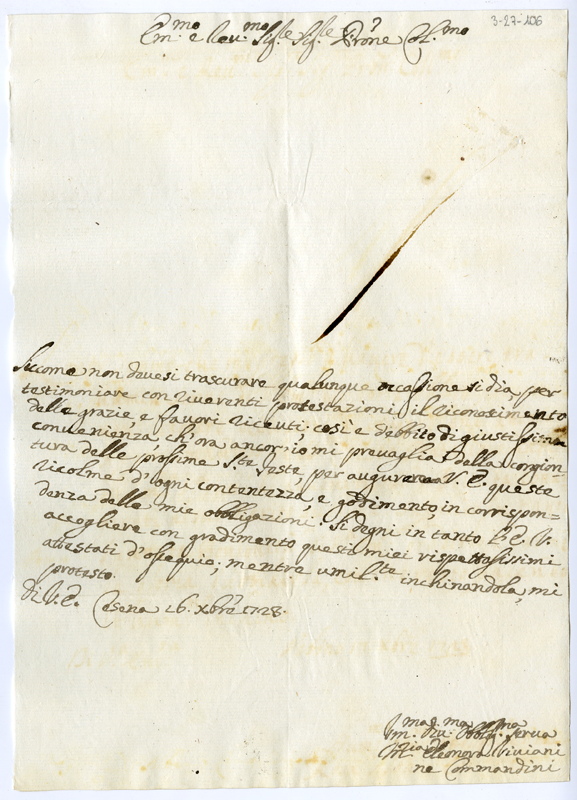 3-27-406
Em.mo e Rev.mo Sig.re Sig.re Prone Col.mo
Siccome non devesi trascurare qualunque occassione si dia, per
testimoniare con riverenti protestazioni il riconosimento
delle grazie, e favori riceuti; così è debbito di giustissima
convenienza ch'ora ancor'io mi prevaglia della congion-
tura delle prossime S.te Feste, per augurare a V. E. queste
ricolme d'ogni contentezza, e godimento, in corrispon-
denza delle mie obbligazioni. Si degni in tanto l'E. V.
accogliere con gradimento questi miei rispettosissimi
attestati d'ossequio; mentre umil.te inchinandola, mi
protesto.
Di V. E. Cesena 16. Xbre 1728.
Um. Dev. Obblig. serva
M.a Eleonora Viviani
ne Commandini